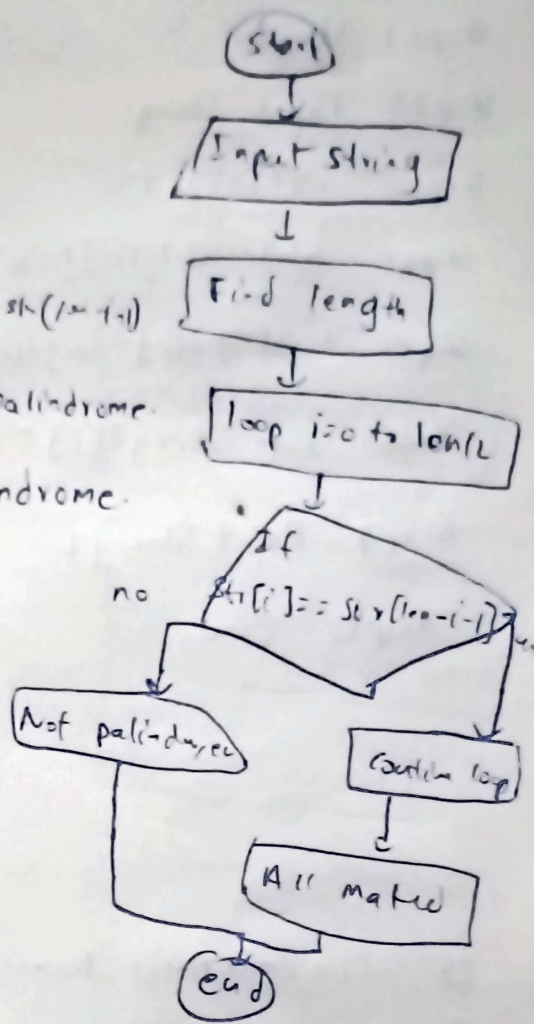 start
Input string
Find length
str(len-i-1)
palindrome.
loop i=0 to len/2
ndrome.
If
no
str[i]==str[len-i-1]
Not
continue loop
All
end